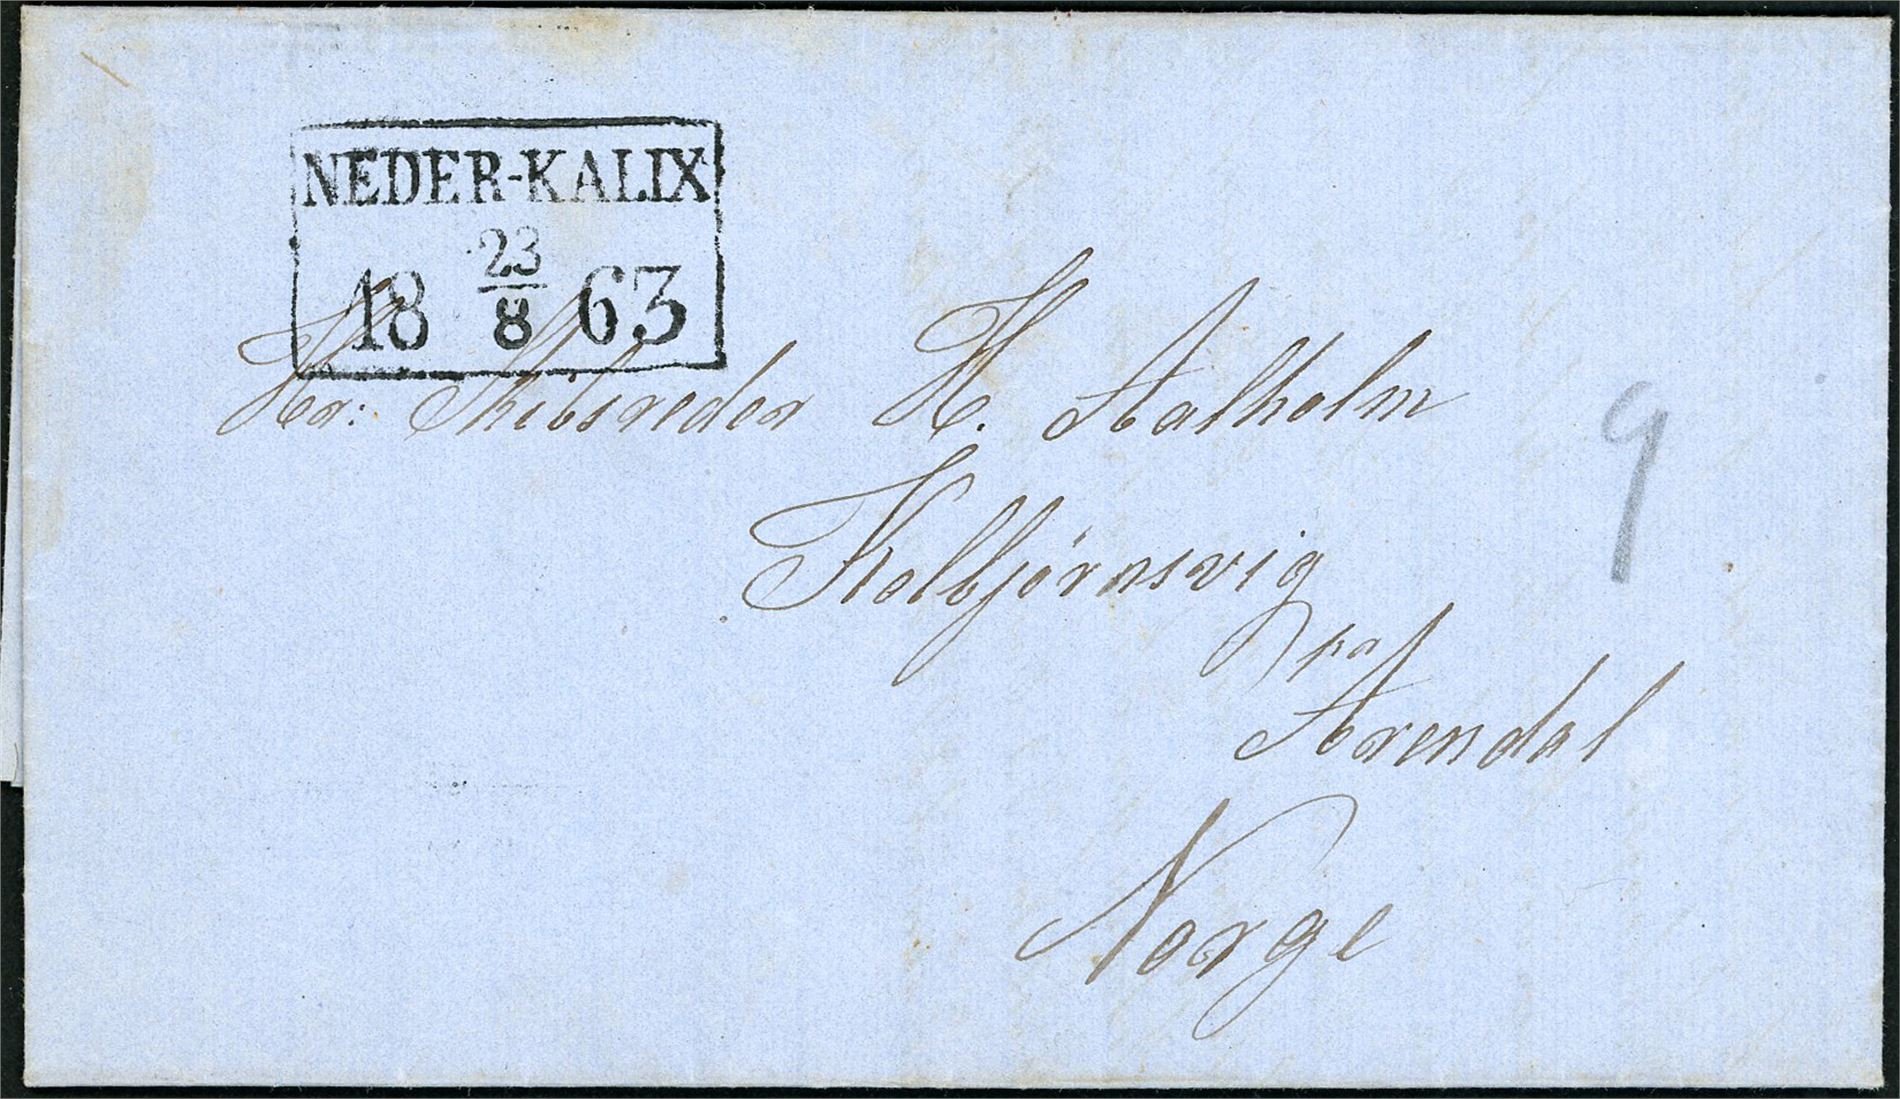 NEDER-KALIX
18 23/8 63
Hr: Skibsreder H. Aalholm
Kolbjørnsvig
pr
Arendal
Norge
9